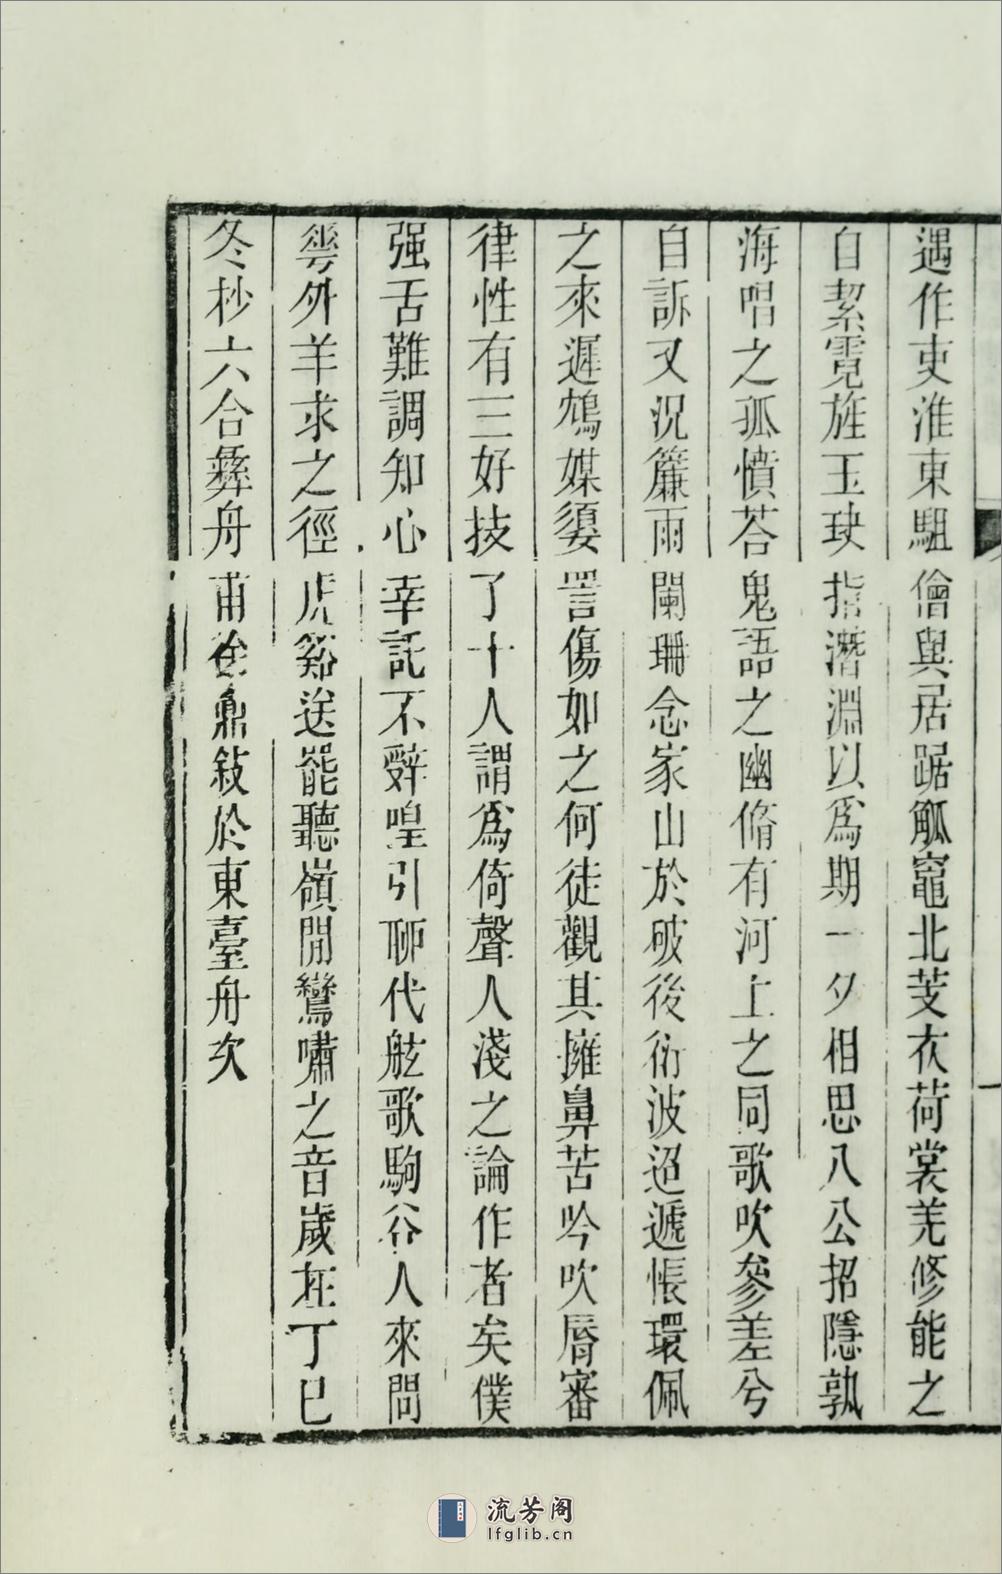 遇作吏淮東駔儈與居踞觚竈北芰衣荷裳羌修能之
自絜霓旌玉玦指潛淵以爲期一夕相思八公招隱孰
海唱之孤憤荅鬼語之幽脩有河上之同歌吹參差兮
自訴又況簾雨闌珊念家山於破後衍波迢遞悵環佩
之來遲鴆媒嬃詈傷如之何徒觀其擁鼻苦吟吹脣審
律性有三好技了十人謂爲倚聲人淺之論作者矣僕
强舌難調知心幸託不辤喤引聊代舷歌駒谷人來問
𠌶外羊求之徑虎谿送罷聽嶺閒鸞嘯之音歲在丁巳
冬杪六合彝舟甫徐鼒敍於東臺舟次
流芳阁
lfglib.cn